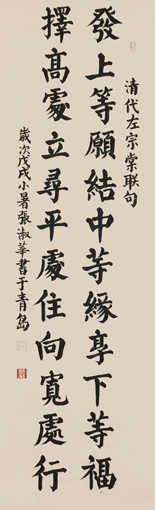 清代左宗棠联句
發上等願結中等緣享下等福
擇高處立尋平處住向寬處行
歲次戊戌小暑張淑華書于青島